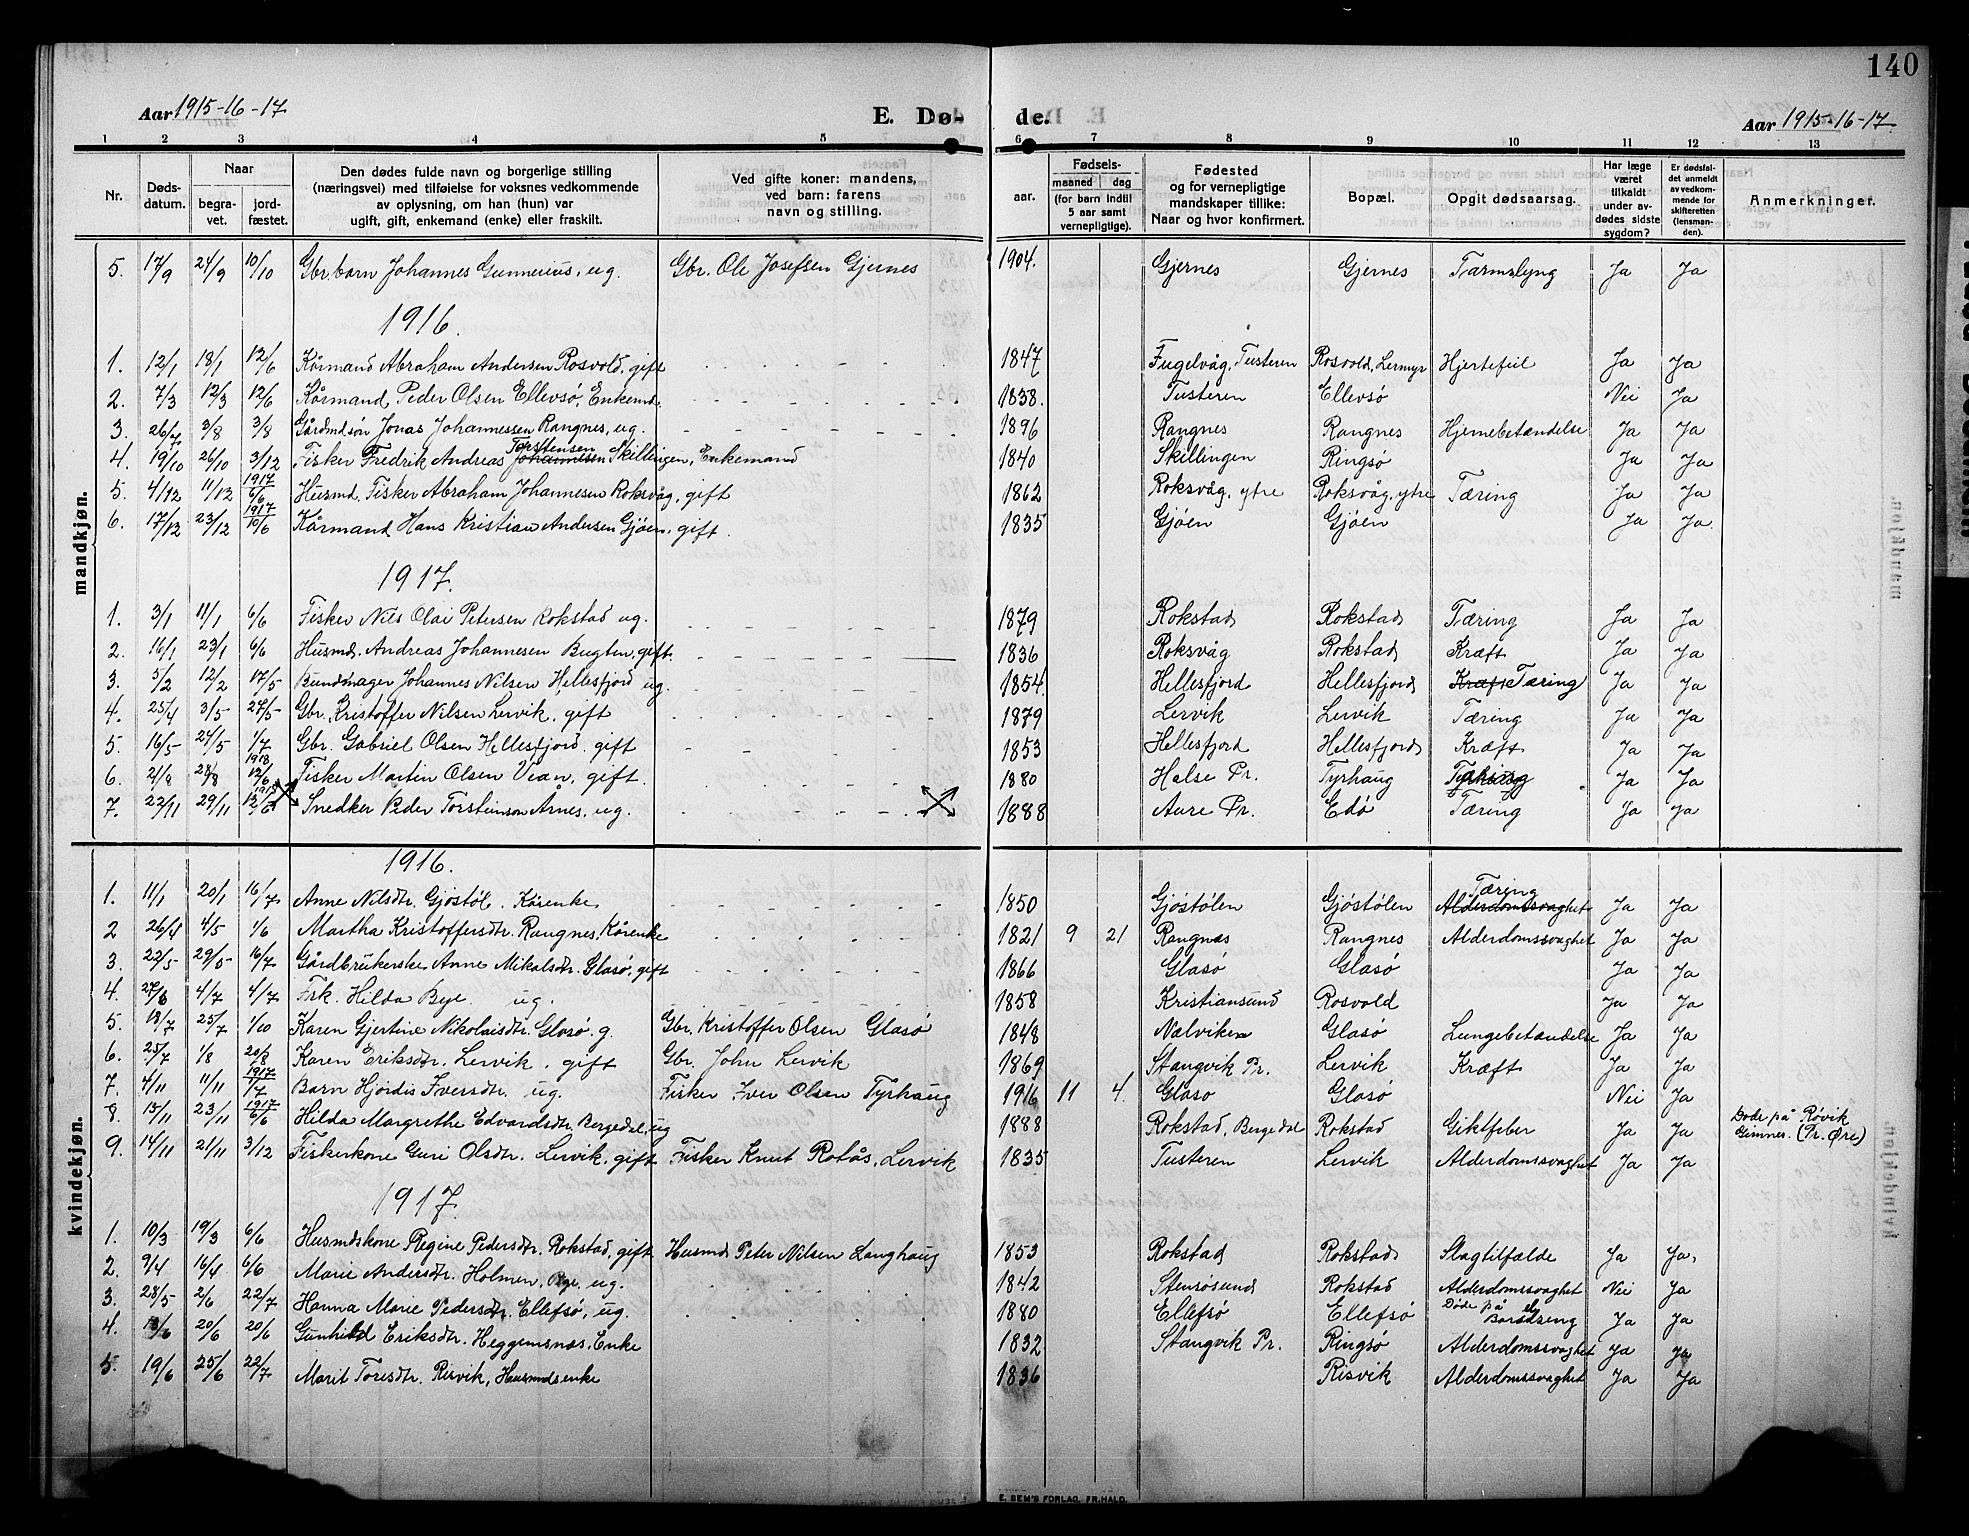 140
Aar 1915-16-17
E. Dø- de.
Aar 1915-16-17.
1 2 3 4 5 6 7 8 9 10 11 12 13
Nr. | Døds-datum. | Naar begra-vet. | jord-fæstet. | Den dødes fulde navn og borgerlige stilling (næringsvei) med tilføielse for voksnes vedkommende av oplysning, om han (hun) var ugift, gift, enkemand (enke) eller fraskilt. | Ved gifte koner: mandens, ved barn: farens navn og stilling. | aar. | Fødsels- maaned dag (for barn indtil 5 aar samt vernepligtige). | Fødested og for vernepligtige mandskaper tillike: Naar og hvor konfirmert. | Bopæl. | Opgit dødsaarsag. | Har læge været tilkaldt under av-dødes sidste sygdom? | Er dødsfal-det anmeldt av vedkom-mende for skifteretten (lensman-den). | Anmerkninger.
mandkjøn.
5. 17/9 24/9 10/10 Gbr. barn Johannes Gunnerius, ug. Gbr. Ole Josefsen Gjernes 1904. Gjernes Gjernes Tarmslyng Ja Ja
1916.
1. 12/1 18/1 12/6 Kårmand Abraham Andersen Rosvold, gift 1847 Fugelvåg, Tusteren Rosvold, Lermyr Hjertefeil Ja Ja
2. 7/3 12/3 12/6 Kårmand Peder Olsen Ellevsø, Enkemd. 1838. Tusteren Ellevsø Nei Ja
3. 26/7 3/8 3/8 Gårdmdsøn Jonas Johannessen Rangnes, ug. 1896 Rangnes Rangnes Hjernebetændelse Ja Ja
4. 19/10 26/10 3/12 Fisker Fredrik Andreas Johannesen Torstensen Skillingen, Enkemand 1840 Skillingen Ringsø Ja Ja
5. 4/12 11/12 1917 6/6 Husmd. Fisker Abraham Johannesen Roksvåg, gift 1862 Roksvåg, ytre Roksvåg, ytre Tæring Ja Ja
6. 17/12 23/12 1917 10/6 Kårmand Hans Kristian Andersen Gjøen, gift. 1835 Gjøen Gjøen Ja Ja.
1917.
1. 3/1 11/1 6/6 Fisker Nils Olai Petersen Rokstad ug. 1879 Rokstad Rokstad Tæring Ja Ja
2. 16/1 23/1 6/6 Husmd. Andreas Johannesen Bugten, gift. 1836 Roksvåg Rokstad Kræft Ja Ja
3. 5/2 12/2 17/5 Bundmager Johannes Nilsen Hellesfjord ug. 1854. Hellesfjord Hellesfjord Kræft Tæring Ja Ja
4. 25/4 3/5 27/5 Gbr. Kristoffer Nilsen Lervik, gift 1879 Lervik Lervik Tæring Ja Ja
5. 16/5 24/5 1/7 Gbr. Gabriel Olsen Hellesfjord, gift 1853 Hellesfjord Hellesfjord Kræft Ja Ja
6. 21/8 28/8 1918 12/6 Fisker Martin Olsen Vean, gift. 1880 Halse Pr. Tyrhaug Ja Ja
7. 22/11 29/11 1918 12/6 Snedker Peder Torsteinson Årnes, ug. 1888 Aure Pr. Edø Tæring Ja Ja
kvindekjøn.
1916.
1. 11/1 20/1 16/7 Anne Nilsdtr. Gjøstøl. Kårenke 1850 Gjøstølen Gjøstølen Alderdomssvaghet Tæring Ja Ja
2 26/4 4/5 1/6 Martha Kristoffersdtr. Rangnes, Kårenke 1821 9 21 Rangnæs Rangnes Alderdomssvaghet Ja Ja
3. 22/5 29/5 16/7 Gårdbrukerske Anne Mikalsdtr. Glasø, gift 1866 Glasø Glasø Ja Ja
4. 27/6 4/7 4/7 Frk. Hilda Bye. ug. 1858 Kristiansund Rosvold Ja Ja
5. 18/7 25/7 1/10 Karen Gjertine Nikolaisdtr. Glasø. g. Gbr. Kristoffer Olsen Glasø 1848 Nælviken Glasø Lungebetændelse Ja Ja
6. 25/7 1/8 20/8 Karen Eriksdtr. Lervik. gift Gbr. John Lervik 1869 Stangvik Pr. Lervik Kræft Ja Ja
7. 4/11 11/11 1917 1/7 Barn Hjørdis Iversdtr. ug. Fisker Iver Olsen Tyrhaug 1916 11 4. Glasø Glasø Nei Ja
8. 15/11 23/11 1917 6/6 Hilda Margrethe Edvardsdtr. Bergedal, ug 1888 Rokstad, Bergedal Rokstad Giktfeber Ja Ja Døde på Røvik Gimnes. (Pr. Øre)
9. 14/11 21/11 3/12 Fiskerkone Guri Olsdtr. Lervik, gift Fisker Knut Rotås, Lervik 1835 Tusteren Lervik Alderdomssvaghet Ja Ja
1917.
1. 10/3 19/3 6/6 Husmdskone Regine Pedersdtr. Rokstad, gift Husmd Peter Nilsen Langhaug 1853 Rokstad Rokstad Slagtilfælde Ja Ja.
2. 9/4 16/4 6/6 Marie Andersdtr. Holmen, Rge. ug. 1842 Stenrøsund Rokstad Alderdomssvaghet Nei Ja
3. 28/5 2/6 22/7 Hanna Marie Pedersdtr. Ellefsø, ug. 1880 Ellefsø Ellefsø Døde på Barselseng Ja Ja
4. 13/6 20/6 20/6 Gunhild Eriksdtr. Heggemsnæs, Enke 1832 Stangvik Pr. Ringsø Alderdomssvaghet Ja Ja
5. 19/6 25/6 22/7 Marit Toresdtr. Risvik, Husmdsenke 1836 Risvik Alderdomssvaghet Ja Ja
E. SEM'S FORLAG, FR.HALD.